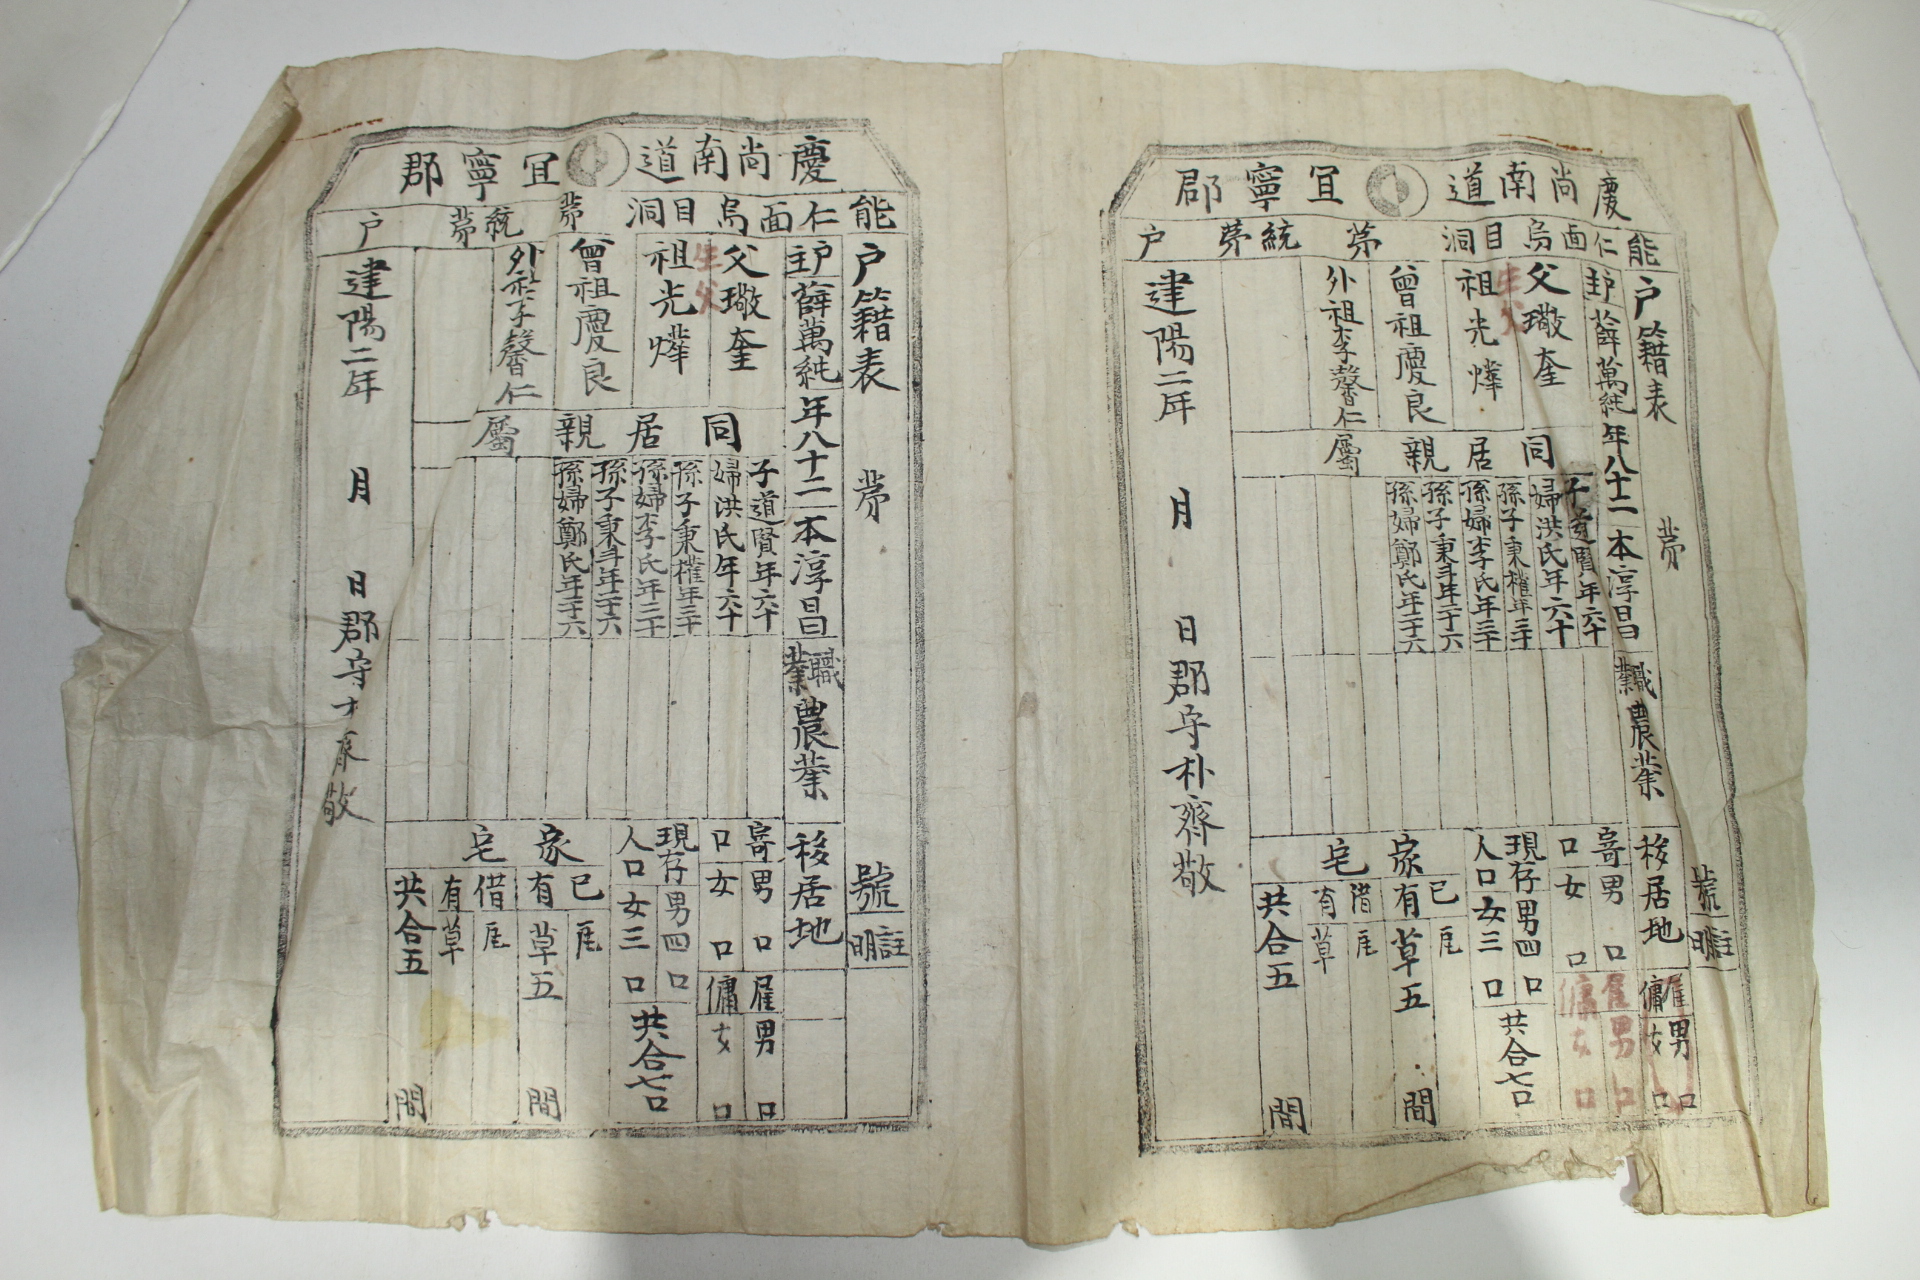 慶尚南道 宜寧郡
能仁面烏目洞 第 統第 戶
戶籍表 第 號
註明
主戶 薛萬純 年八十二 本淳昌 職業 農業
移居地
父 璥奎
生父
祖 光燁
曾祖 慶良
外祖 李馨仁
同居親屬
子道賢年六十
婦洪氏年六十
孫子秉權年三十
孫婦李氏年三十
孫子秉斗年二十六
孫婦鄭氏年二十六
寄口 男 口
女 口
雇傭 男 口
女 口
雇傭 男 口
女 口
現存人口 男四口
女三口
共合七口
家宅
已有 瓦
草五 間
借有 瓦
草
共合五 間
建陽二年 月 日 郡守 朴齊敬
慶尚南道 宜寧郡
能仁面烏目洞 第 統第 戶
戶籍表 第 號
註明
主戶 薛萬純 年八十二 本淳昌 職業 農業
移居地
父 璥奎
生父
祖 光燁
曾祖 慶良
外祖 李馨仁
同居親屬
子道賢年六十
婦洪氏年六十
孫子秉權年三十
孫婦李氏年三十
孫子秉斗年二十六
孫婦鄭氏年二十六
寄口 男 口
女 口
雇傭 男 口
女 口
現存人口 男四口
女三口
共合七口
家宅
已有 瓦
草五 間
借有 瓦
草
共合五 間
建陽二年 月 日 郡守